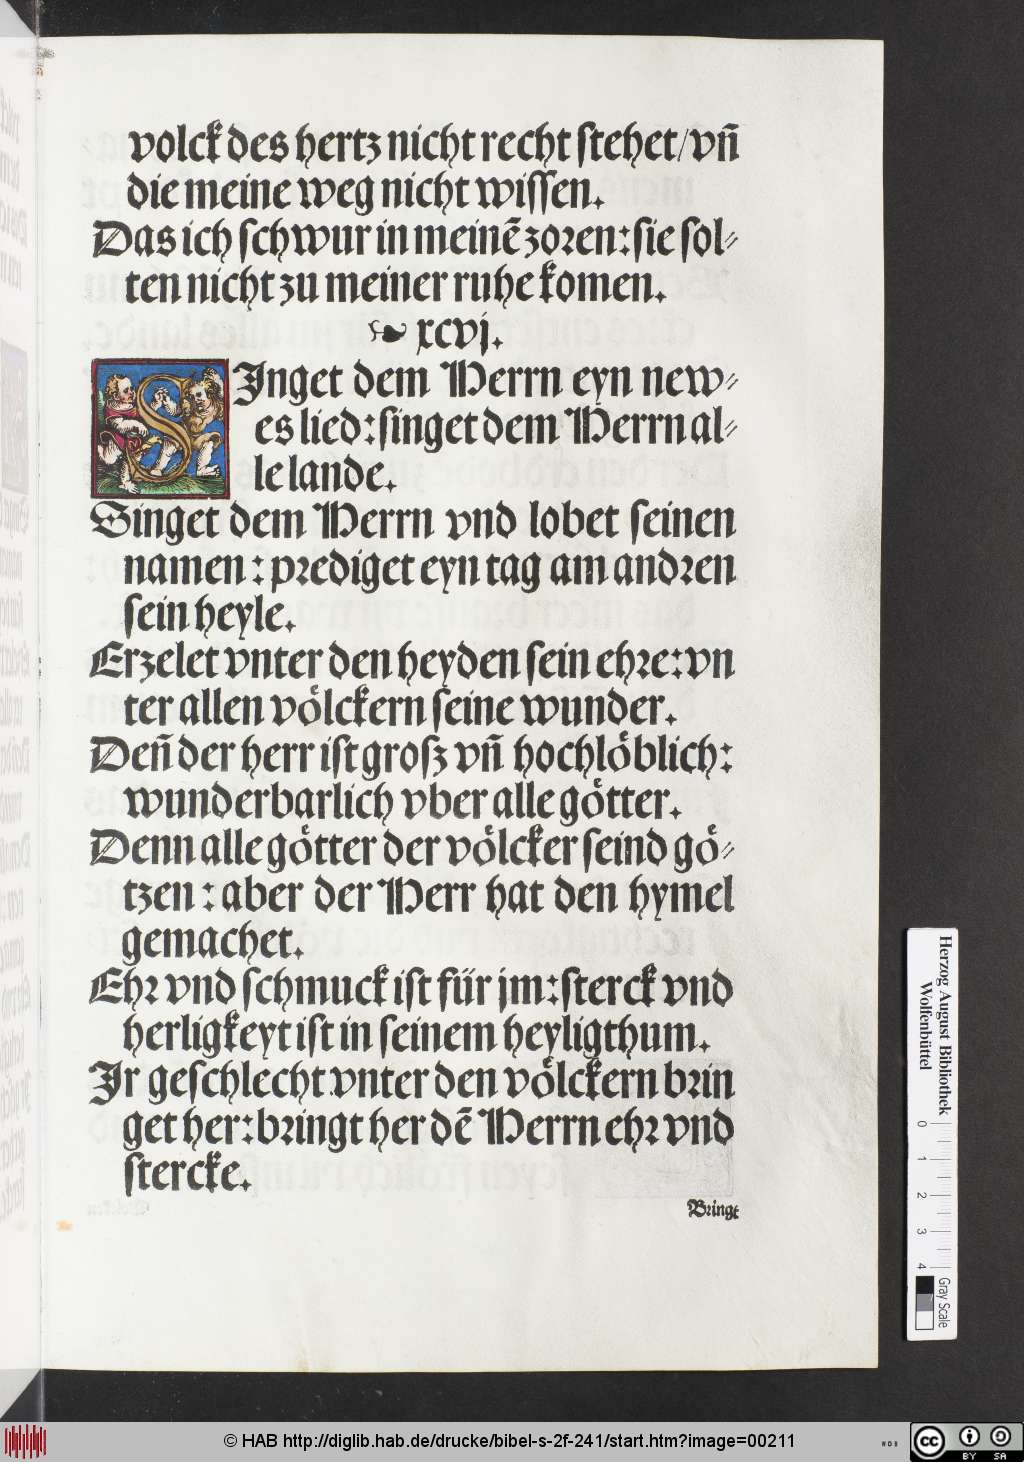 volck des hertz nicht recht stehet/vn̄
die meine weg nicht wissen.
Das ich schwur in meinē zoren: sie sol⸗
ten nicht zu meiner ruhe komen.
xcvj.
SInget dem Herrn eyn new⸗
es lied: singet dem Herrn al⸗
le lande.
Singet dem Herrn vnd lobet seinen
namen: prediget eyn tag am andren
sein heyle.
Erzelet vnter den heyden sein ehre: vn
ter allen völckern seine wunder.
Den̄ der herr ist grosz vn̄ hochlöblich:
wunderbarlich vber alle götter.
Denn alle götter der völcker seind gö⸗
tzen: aber der Herr hat den hymel
gemachet.
Ehr vnd schmuck ist für jm: sterck vnd
herligkeyt ist in seinem heyligthum.
Ir geschlecht vnter den völckern brin
get her: bringt her dē Herrn ehr vnd
stercke.
Bringt
Herzog August Bibliothek
Wolfenbüttel
0 1 2 3 4
Gray Scale
© HAB http://diglib.hab.de/drucke/bibel-s-2f-241/start.htm?image=00211
WDB
cc BY SA